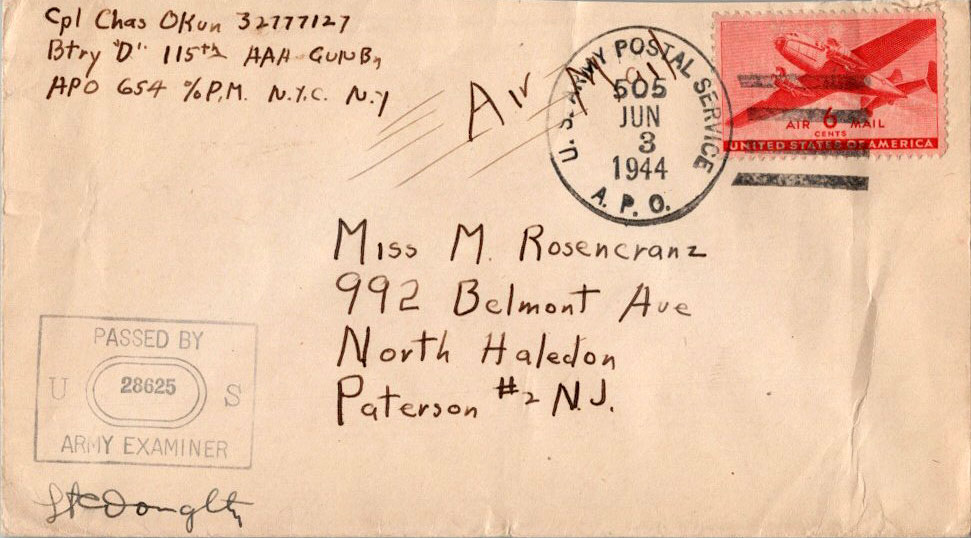 Cpl Chas Okun 32777127
Btry "D" 115th AAA GUN Bn
APO 654 % P.M. N.Y.C. N.Y
Air Mail
U.S. ARMY POSTAL SERVICE
505
JUN
3
1944
A. P. O.
AIR 6 MAIL
CENTS
UNITED STATES OF AMERICA
Miss M. Rosencranz
992 Belmont Ave
North Haledon
Paterson #2 N.J.
PASSED BY
U 28625 S
ARMY EXAMINER